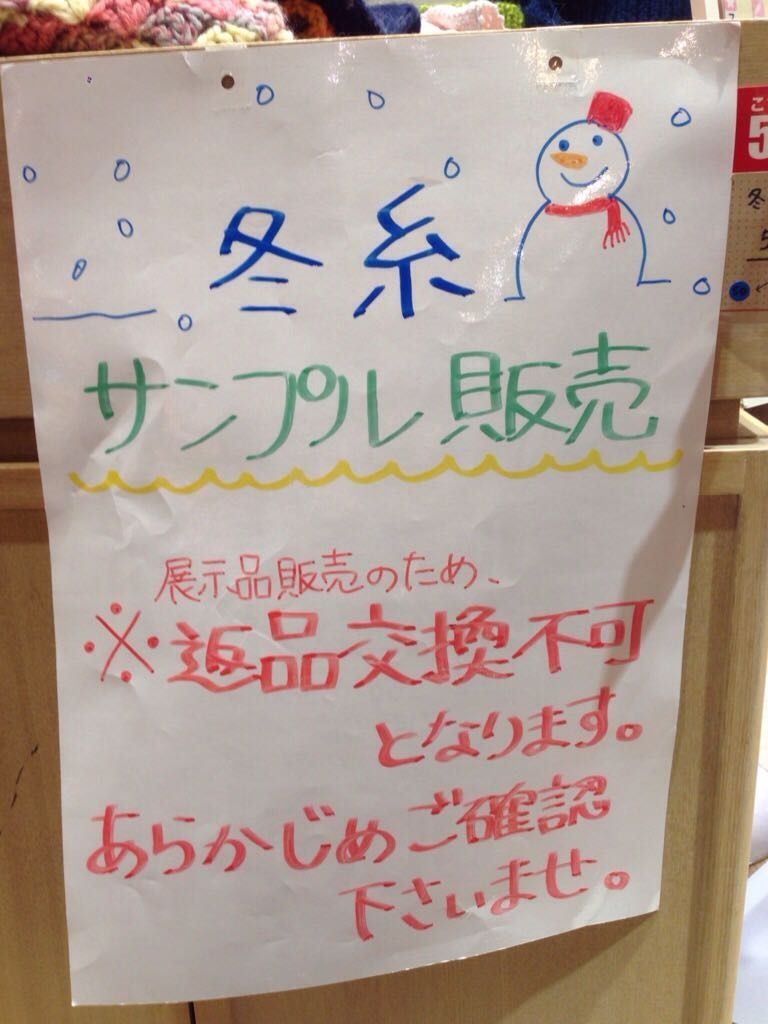 冬糸
サンプル販売
展示品販売のため、
※返品交換不可
となります。
あらかじめご確認
下さいませ。
こ
5
冬